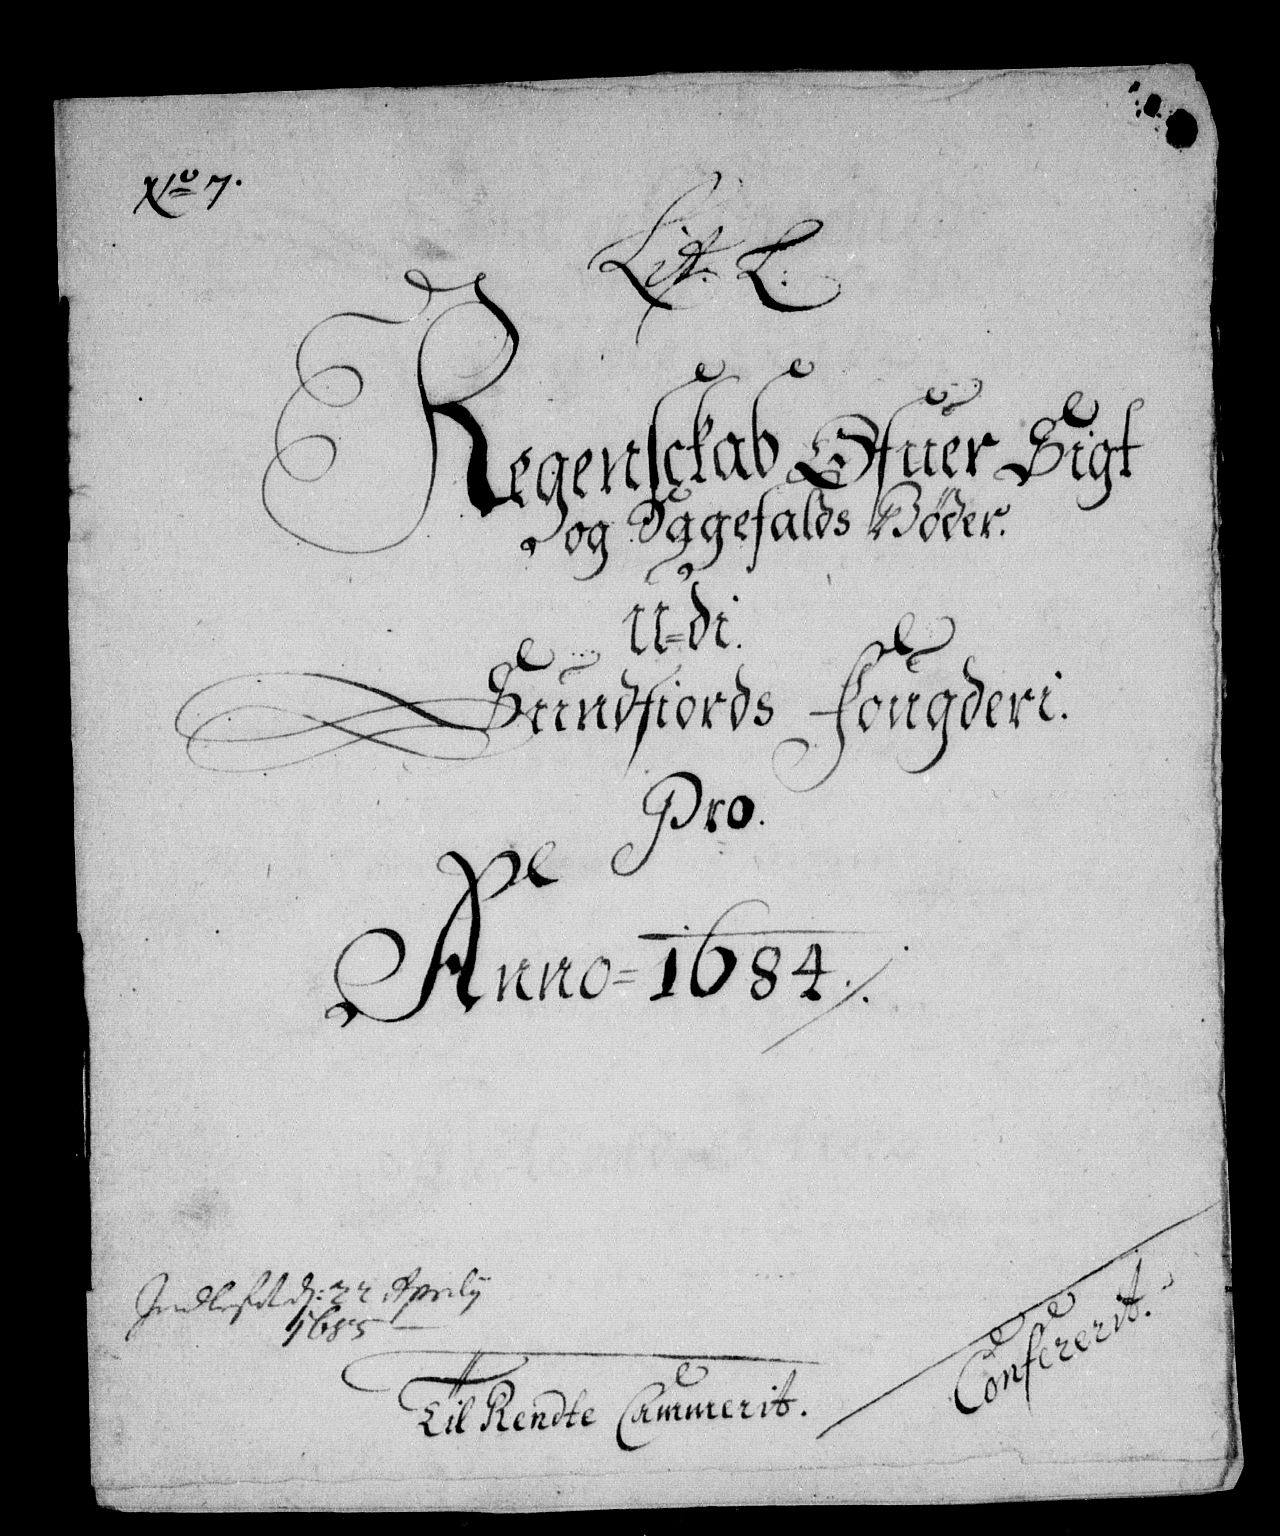 No 7.
Lit. L.
Regenskab Ofuer Sigt
og Iggefalds Bøder.
U=di.
Sundfiords fougderi.
Pro.
Anno=1684.
Indlefret d: 22 Aprily
1685
Til Rendte Cammerit.
Confererit.